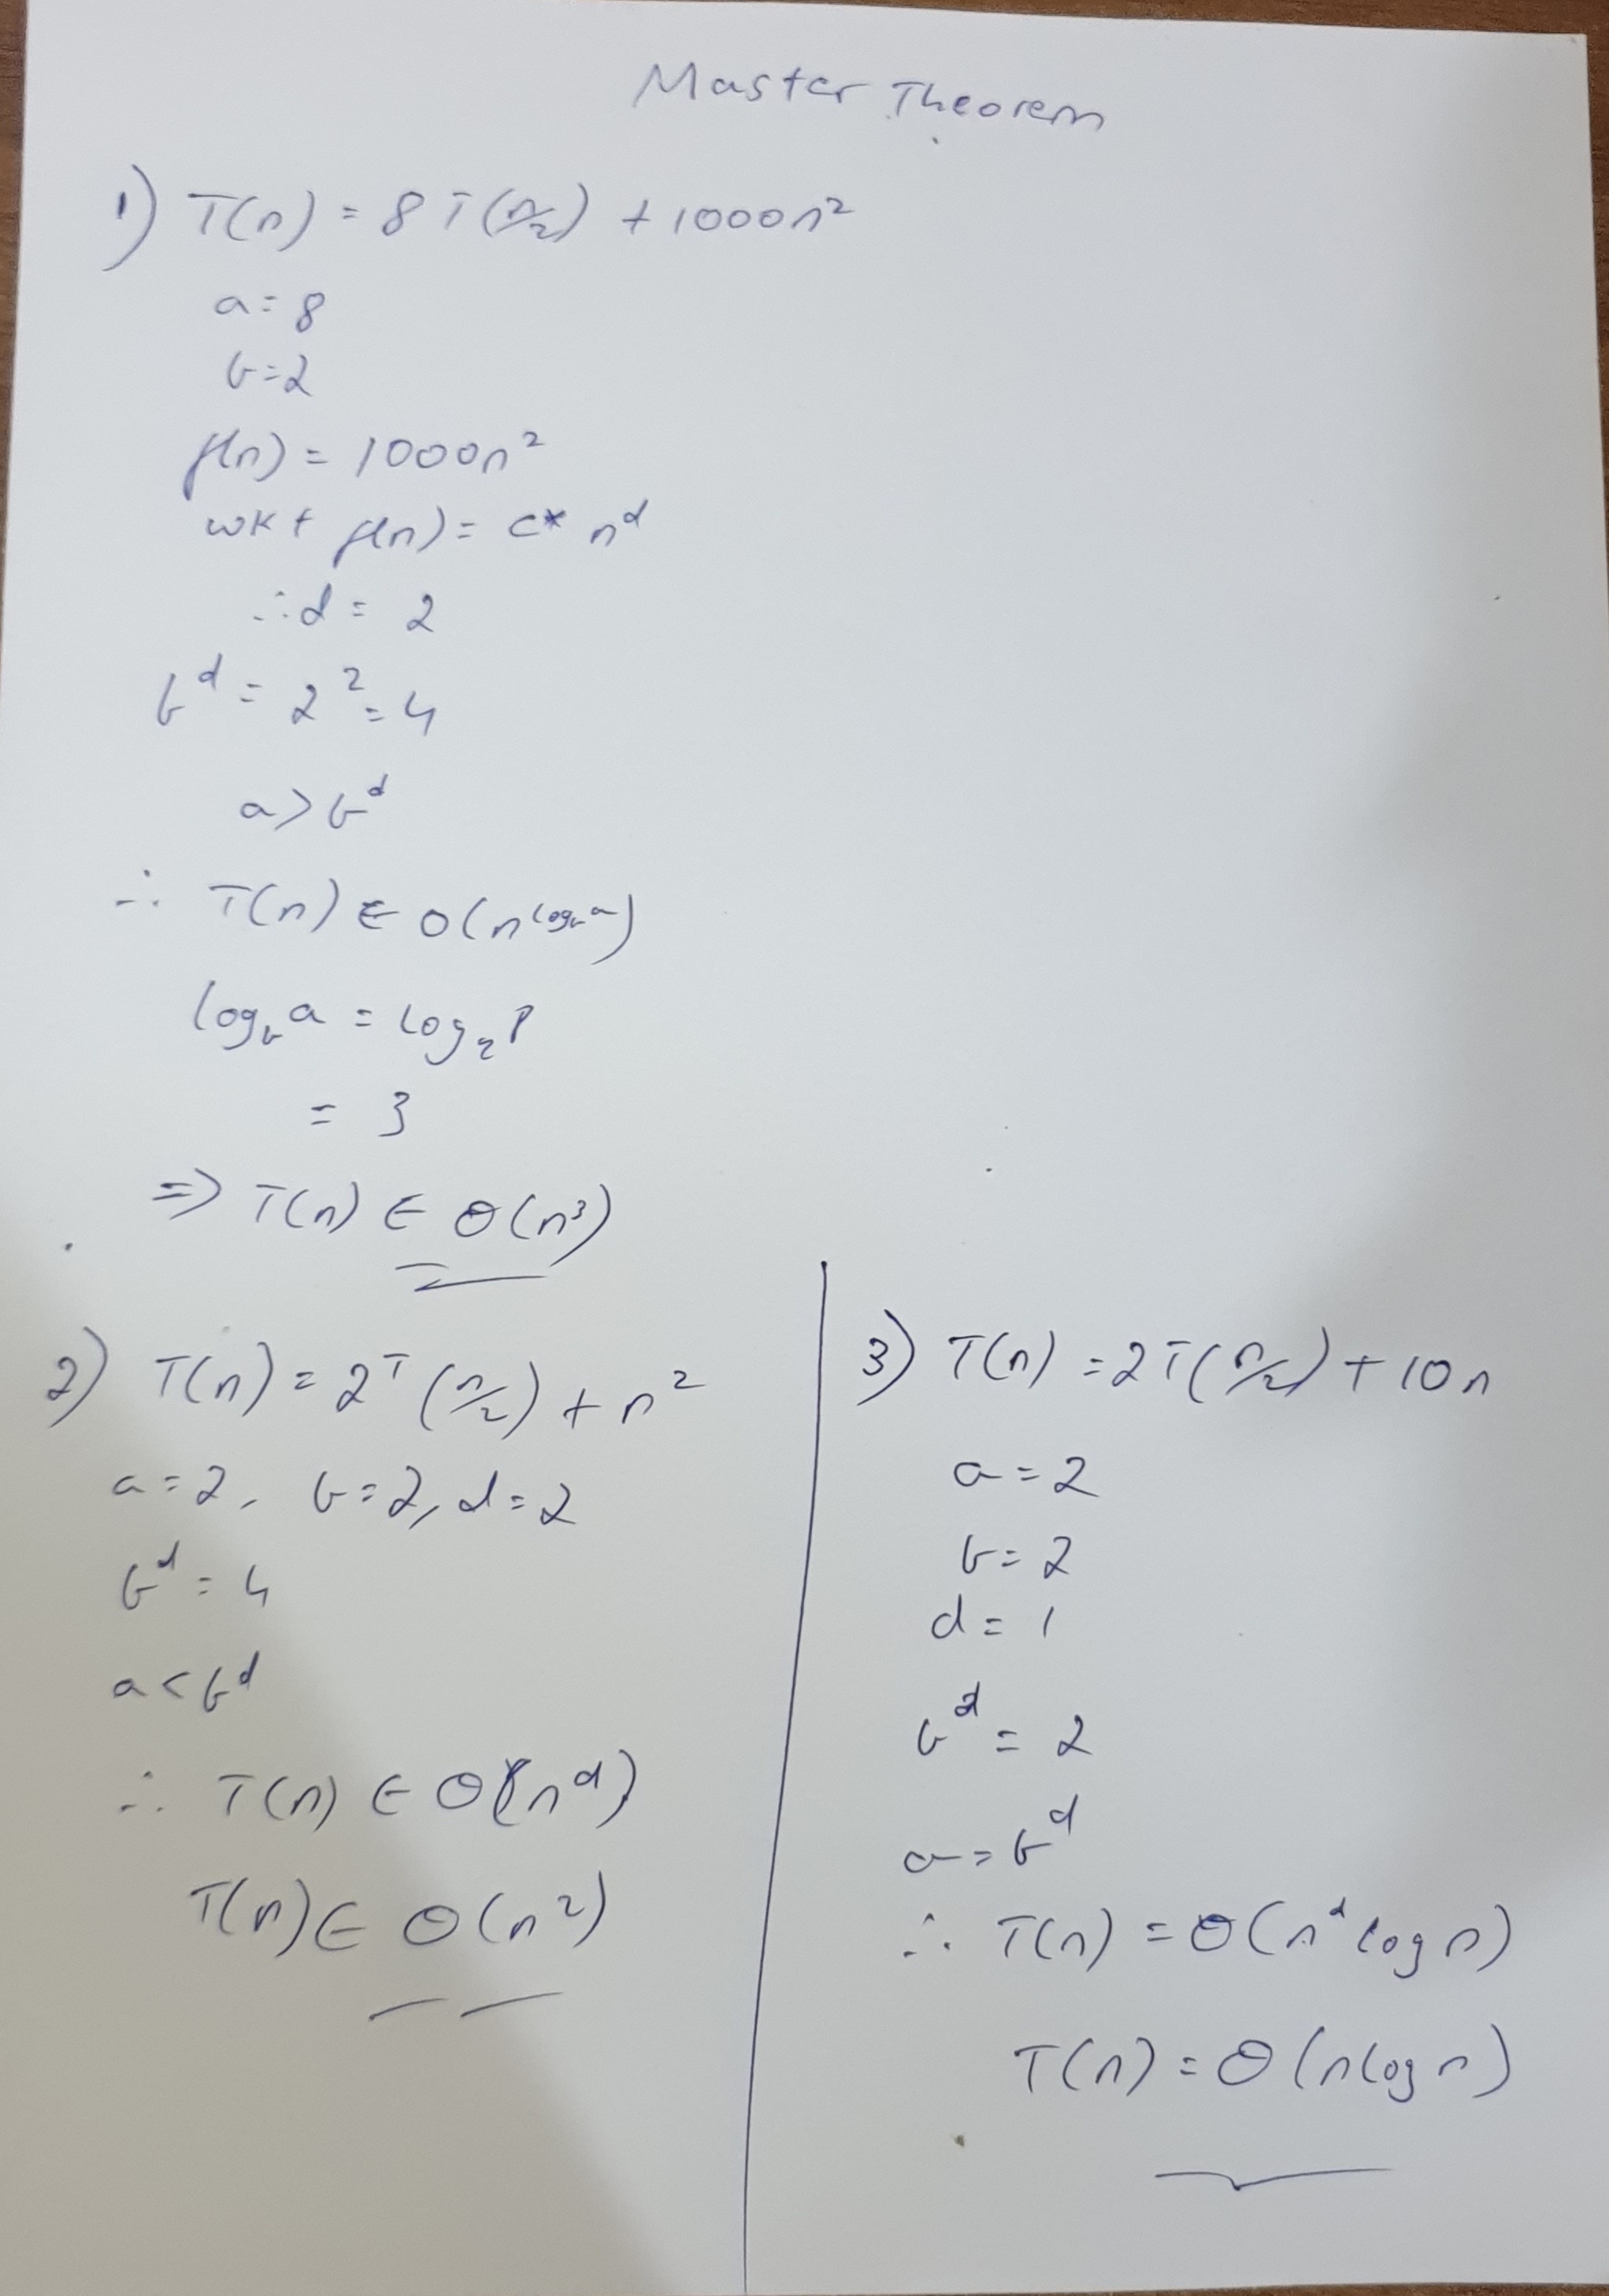 Master Theorem
1) T(n) = 8T(n/2) + 1000n²
a = 8
b = 2
f(n) = 1000n²
wkt f(n) = c* n^d
∴ d = 2
b^d = 2² = 4
a > b^d
∴ T(n) ∈ O(n^(log_b a))
log_b a = log_2 8
= 3
=> T(n) ∈ Θ(n³)
2) T(n) = 2T(n/2) + n²
a = 2, b = 2, d = 2
b^d = 4
a < b^d
∴ T(n) ∈ Θ(n^d)
T(n) ∈ Θ(n²)
3) T(n) = 2T(n/2) + 10n
a = 2
b = 2
d = 1
b^d = 2
a = b^d
∴ T(n) = Θ(n^d log n)
T(n) = Θ(n log n)